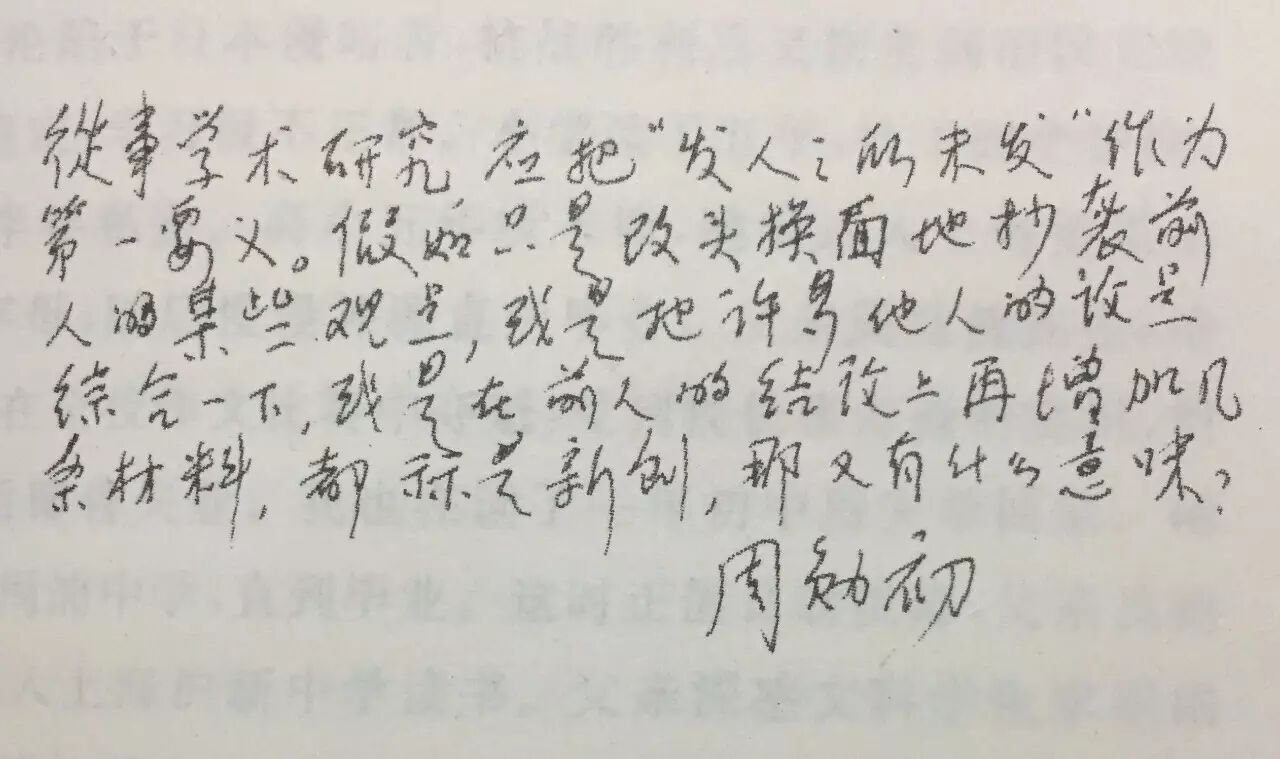 從事学术研究应把“发人之所未发”作为
第一要义。假如只是改头换面地抄袭前
人的某些观点,或是把许多他人的论点
综合一下,或是在前人的结论上再增加几
条材料,都称是新创,那又有什么意味?
周勋初